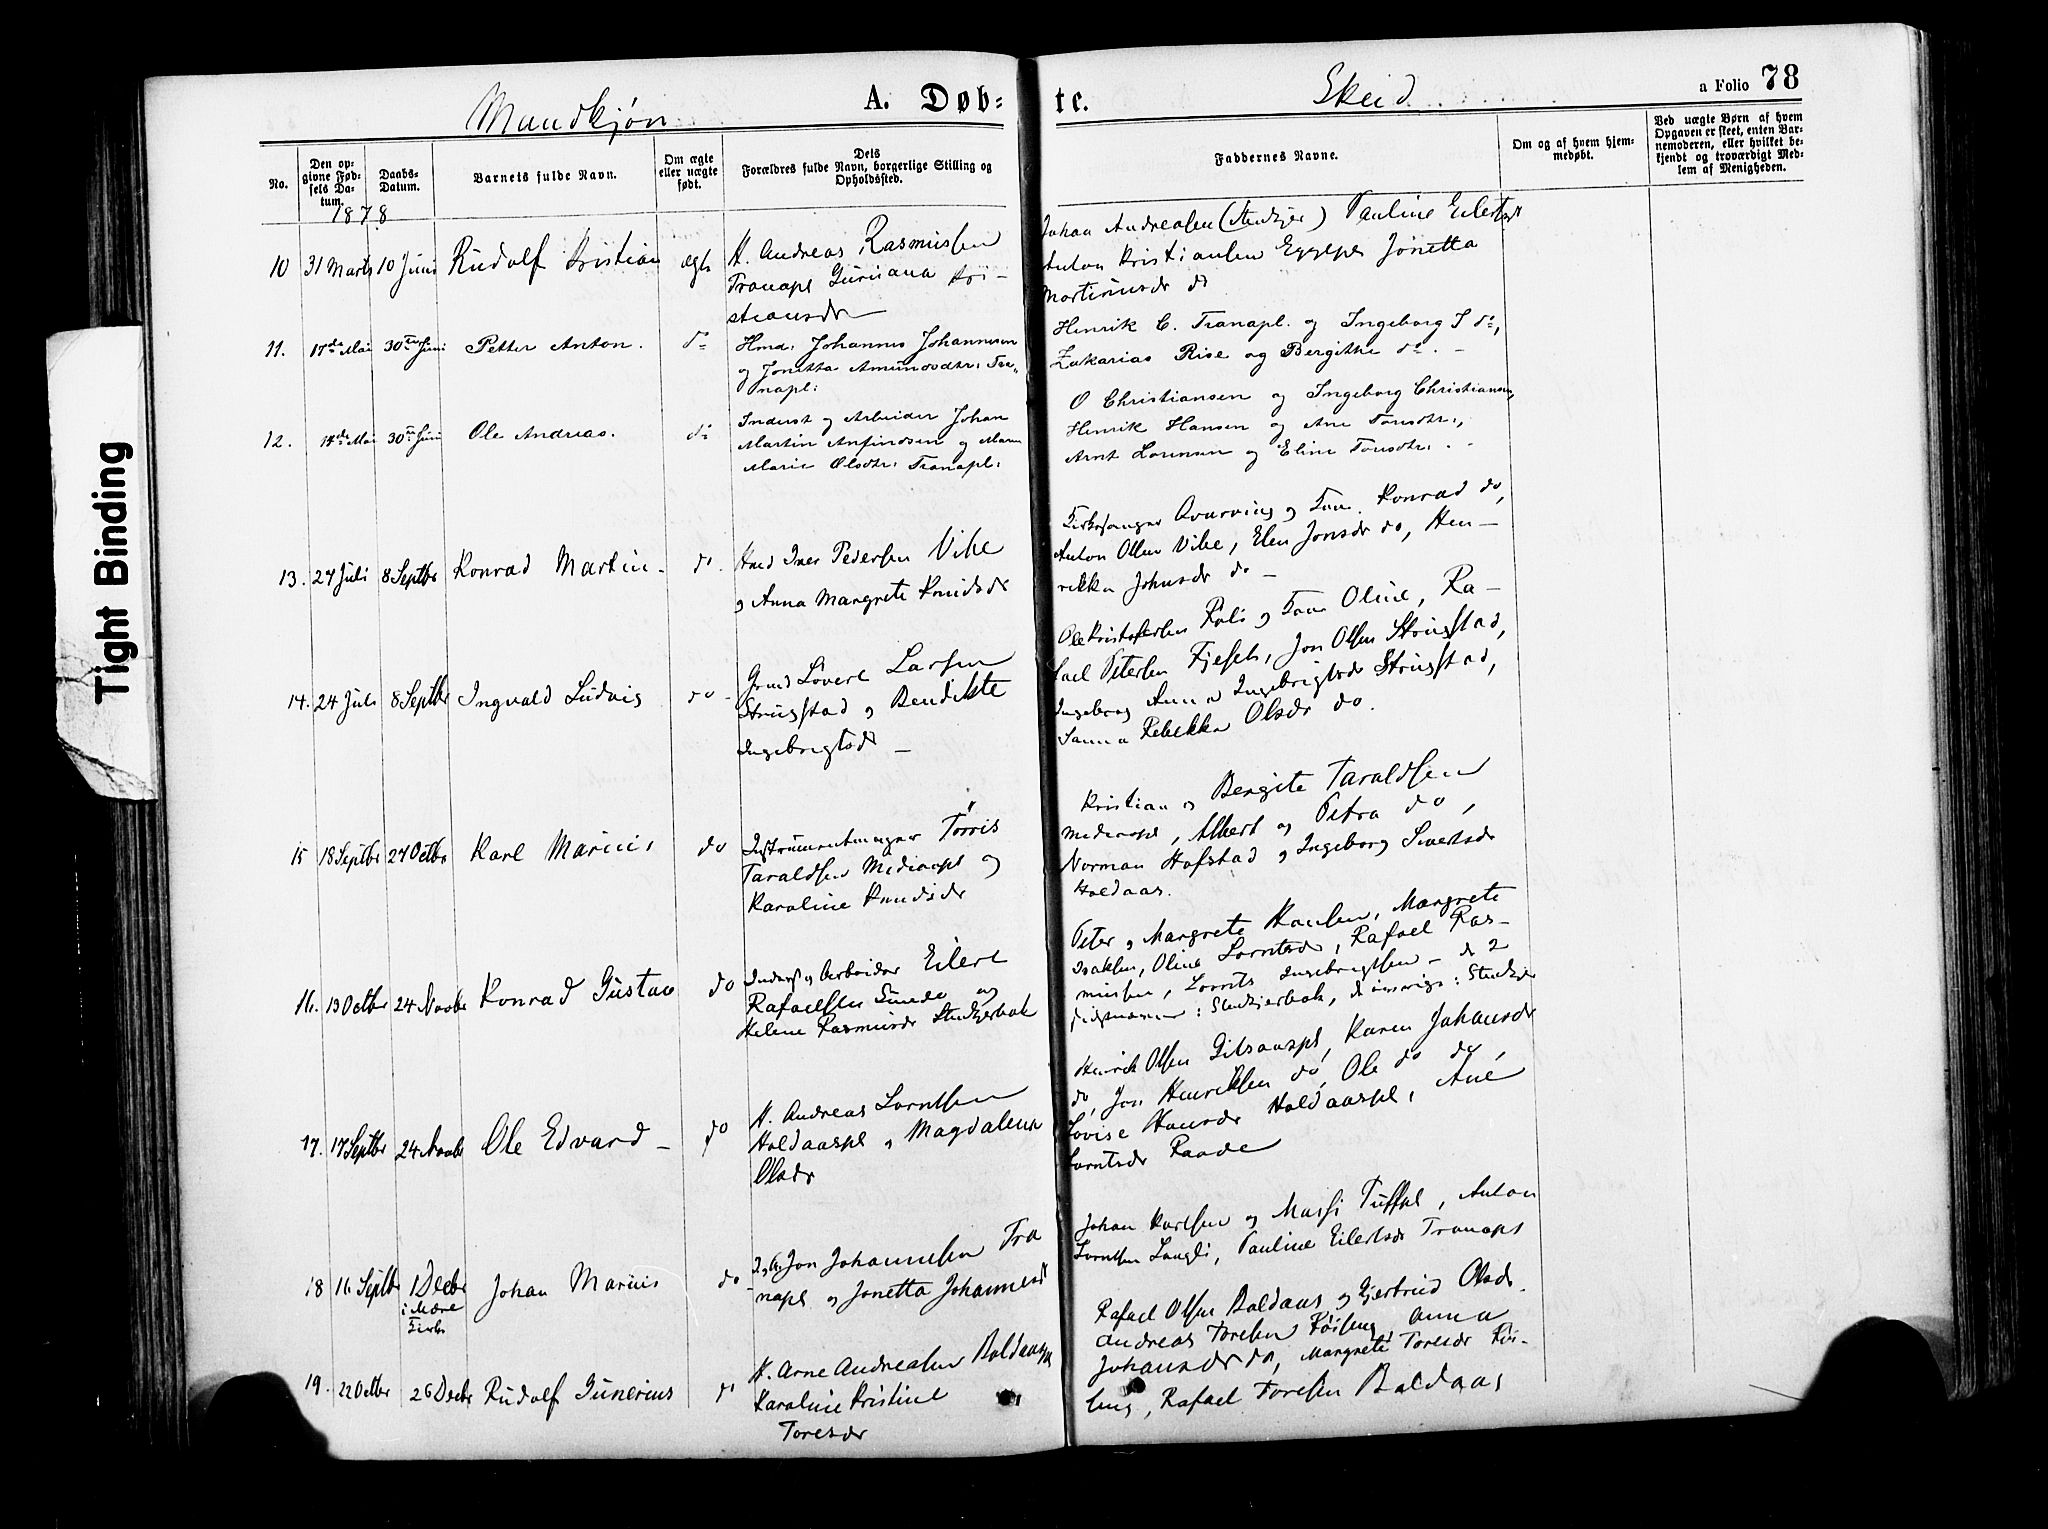 Mandkjøn
A. Døb-
te.
Skeid
a Folio 78
No.
Den op-
givne Fød-
sels Da-
tum.
Daabs-
Datum.
Barnets fulde Navn.
Om ægte
eller uægte
født.
Dets
Forældres fulde Navn, borgerlige Stilling og
Opholdssted.
Faddernes Navne.
Om og af hvem hjem-
medøbt.
Ved uægte Børn af hvem
Opgaven er skeet, enten Bar-
nemoderen, eller hvilket be-
kjendt og troværdigt Med-
lem af Menigheden.
1878
10 31 Marts 10 Juni Rudolf Kristian ægte
H. Andreas Rasmussen
Tranapl Guruana Kri-
stiansdr
Johan Andreasen (Stenkjer) Pauline Eilertsdr
Anton Kristiansen Eggepl Jonetta
Martinusdr do
11. 17de Mai 30te Juni Petter Anton. do
Hmd. Johannes Johannesen
og Jonetta Amundsdtr: Tra-
napl:
Henrik C. Tranapl. og Ingeborg J do,
Zakarias Rise og Bergitte do. -
12. 14de Mai 30te Juni Ole Andreas. do
Inderst og Arbeider Johan
Martin Anfindsen og Maren
Marie Olsdtr: Tranapl:
O Christiansen og Ingeborg Christiansen,
Henrik Hansen og Ane Tonsdtr:,
Arnt Lorensen og Eline Tonsdtr: . -
13. 27 Juli 8 Septbr Konrad Martin - do.
Hmd Iver Pedersen Vibe
og Anna Margrete Knudsdr
Kirkesanger Qvarving og Frue. Konrad do,
Anton Olsen Vibe, Elen Jonsdr do, Hen-
rikka Johnsdr do -
14. 24 Juli 8 Septbr Ingvald Ludvig do -
Grmd Sivert Larsen
Strugstad og Bendikte
Ingebrigtsdr -
Ole Kristofersen Røli og Frue Oline, Ra-
fael Petersen Fjeseth, Jon Olsen Strugstad,
Ingeborg Anna Ingebrigtsdr Strugstad,
Sanna Rebekka Olsdr do.
15 18 Septbr 27 Octbr Karl Marius do
Instrumentmager Tørris
Taraldsen Mediaapl og
Karoline Knudsdr
Kristian og Bergite Taraldsen
Mediaapl, Albert og Petra do,
Norman Hofstad og Ingeborg Sivertsdr
Holdaas.
16. 13 Octbr 24 Novbr Konrad Gustav do
Inderst og Arbeider Eilert
Rafaelsen Sunde og
Helene Rasmusdr Stenkjerbak
Peter og Margrete Hansen, Margrete
Isaksen, Oline Lorntsdr, Rafael Ras-
mussen, Lornts Ingebrigtsen - de 2
sidstnævnte: Stenkjerbak, de øvrige: Stenkjer
17. 17 Septbr 24 Novbr Ole Edvard - do
H. Andreas Lorntsen
Holdaaspl og Magdalena
Olsdr
Henrik Olsen Gilsaaspl, Karen Johansdr
do, Jon Henriksen do, Ole do do,
Lovise Hansdr Holdaaspl, Ane
Lorntsdr Raade
18 16 Septbr 1 Decbr
i Mære
Kirke
Johan Marius do -
I. og A. Jon Johannesen Tra
napl og Jonetta Johannesdr
Johan Karlsen og Massi Tufspl, Anton
Lorntsen Langli, Pauline Eilertsdr Tranapl
19. 22 Octbr 26 Decbr Rudolf Gunerius do
H. Arne Andreasen Baldaaspl
Karoline Kristine
Toresdr
Rafael Olsen Baldaas og Gjertrud Olsdr.
Andreas Toresen Røiseng, Anna
Johansdr do, Margrete Toresdr Røi-
seng, Rafael Toresen Baldaas
Tight Binding